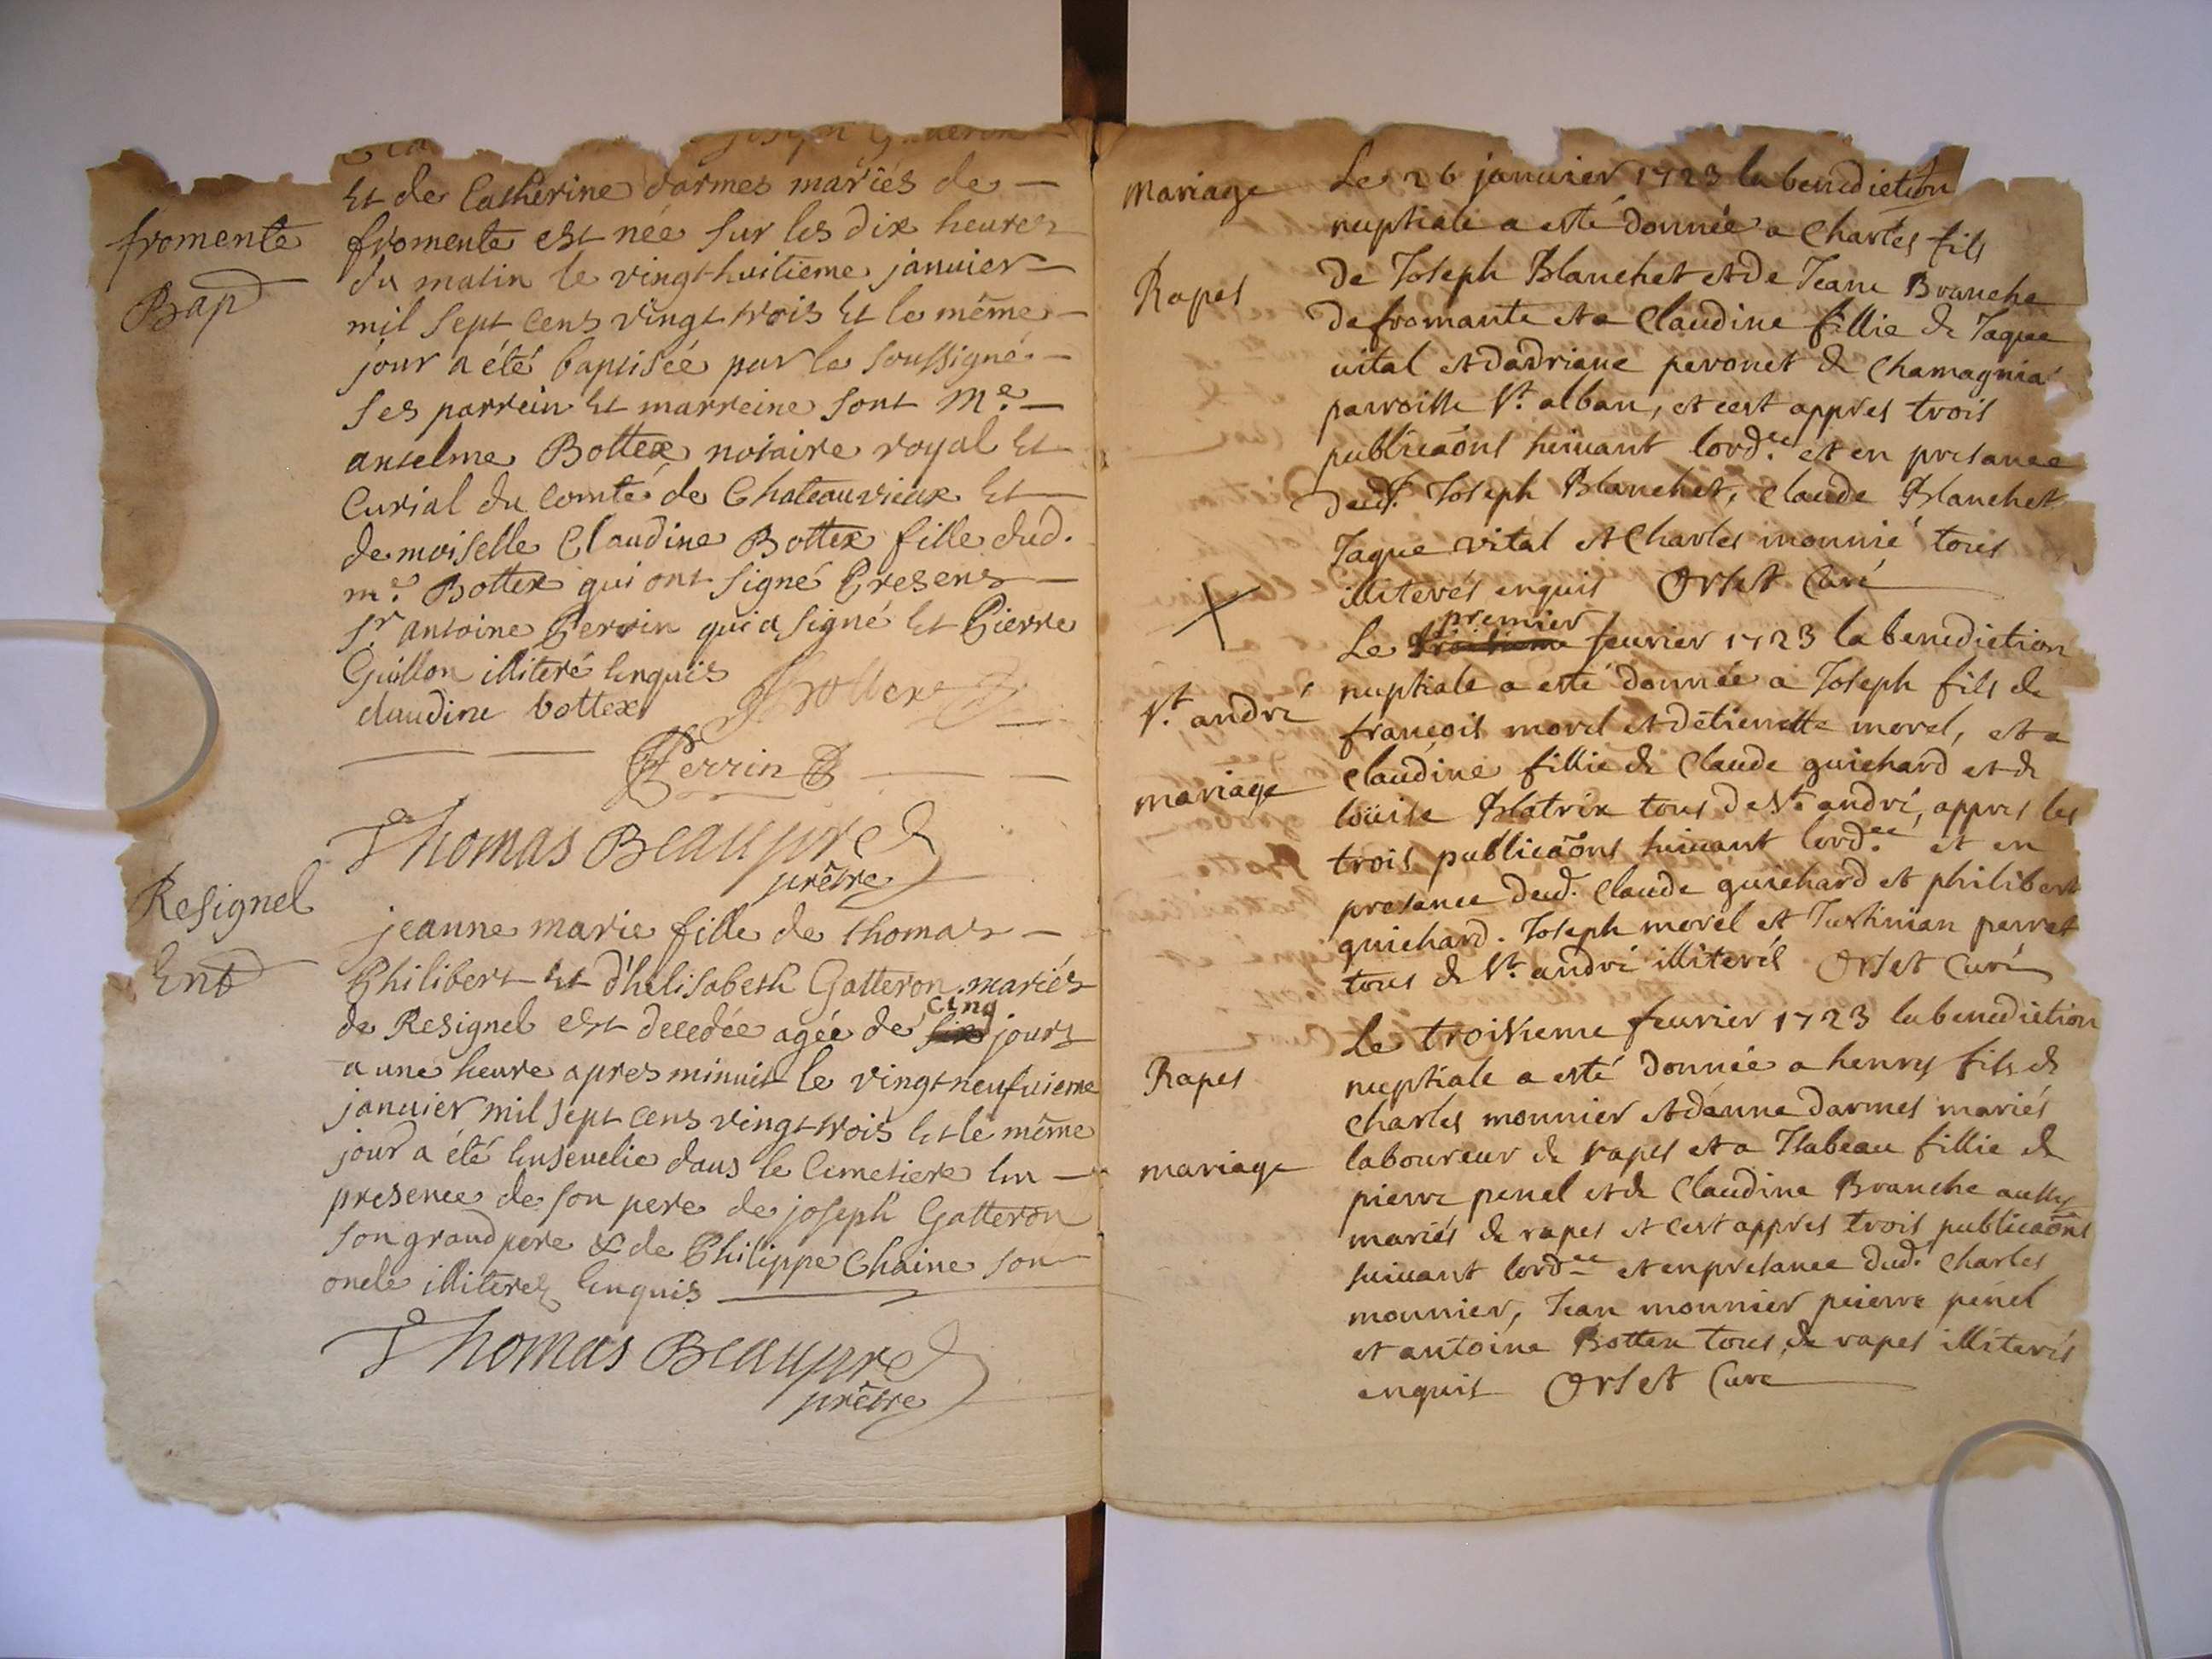 Et de Catherine darmes mariés de
fromente
fromente est née sur les dix heures
Bap
du matin le vingt huitieme januier
mil sept cens vingt trois Et le même
jour a été baptisée par le soussigné
ses parrein Et marreine sont Me.
anselme Bottex notaire royal Et
Curial du Comté de Chateauvieux Et
demoiselle Claudine Bottex fille dud.
me. Bottex qui ont signé Presens
sr antoine Perrin qui a signé Et Pierre
Guillon illiteré Enquis
claudine bottex Bottex
Perrin
Thomas Beaupré
prêtre
Resignel
Ent
jeanne marie fille de thomas
Philibert Et d'helisabeth Gatteron mariés
cinq
de Resignel est decedée agée de six jours
a une heure apres minuit le vingt neufuieme
januier mil sept cens vingt trois Et le même
jour a été Enseuelie dans le Cemetiere En
presence de son pere de joseph Gatteron
son grand pere & de Philippe Chaine son
oncle illiterez Enquis
Thomas Beaupré
prêtre
mariage
Le 26 januier 1723 la benediction
nuptiale a esté donnée a Charles fils
Rapes
de Joseph Blanchet et de Jeane Branche
de fromante et a Claudine fillie de Jaque
vital et dadriane peronet de Chamagnia
parroisse St. alban, et cest appres trois
publicaõns suiuant lord.ce et en presance
deud. Joseph Blanchet, Claude Blanchet
Jaque vital et Charles monnié tous
illiterés enquis Orset Curé
premier
Le troisieme feurier 1723 la benediction
St. andré
nuptiale a esté donnée a Joseph fils de
françois morel et détiennette morel, et a
mariage
Claudine fillie de Claude guichard et de
loüise Blatrix tous de St. andré, appres les
trois publicaõns suiuant lord.ce et en
presance deud. Claude guichard et philibert
guichard. Joseph morel et Justinian perret
tous de St. andré illiterés Orset Curé
Le troisieme feurier 1723 la benediction
Rapes
nuptiale a esté donnée a henry fils de
Charles monnier et déanne darmes mariés
mariage
laboureur de rapes et a Isabeau fillie de
pierre penel et de Claudine Branche aussy
mariés de rapes et cest appres trois publicaõns
suiuant lord.ce et en presance dud. Charles
monnier, Jean monnier pierre penel
et antoine Bottex tous de rapes illiterés
enquis Orset Curé